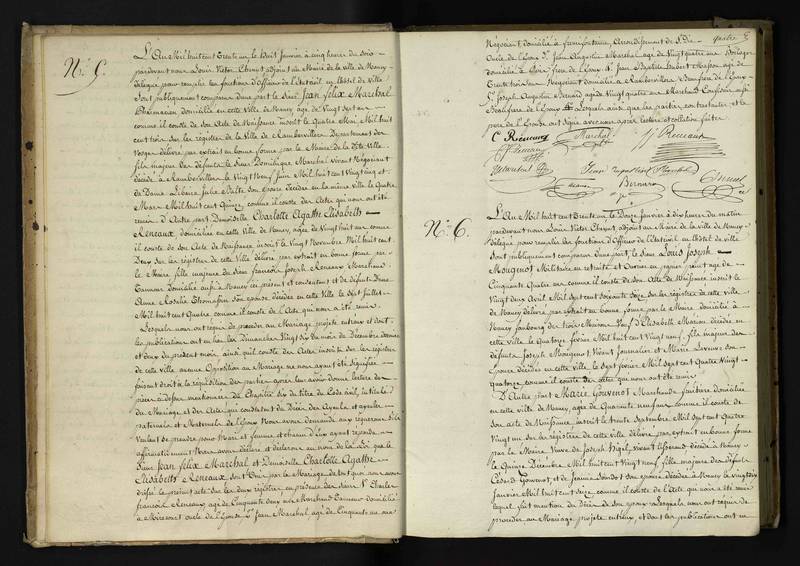 N°. 5.
L'An Mil huit cent Trente un le huit Janvier à cinq heures du soir
pardevant nous Louis Victor Chenut adjoint au Maire de la ville de Nancy
délégué pour remplir les fonctions d'officier de l'état civil en l'hôtel de Ville
Sont publiquement comparus d'une part le Sieur Jean Felix Marechal
Pharmacien domicilié en cette Ville de Nancy âgé de Vingt sept ans
comme il conste de son Acte de Naissance inscrit le Quatre Mai Mil huit
cent trois sur les registres de la Ville de Rambervillers Département des
Vosges délivré par extrait en bonne forme par le Maire de la dite Ville
fils majeur des défunts le Sieur Dominique Marechal vivant Négociant
décédé à Rambervillers le Vingt Neuf Juin Mil huit cent Vingt cinq et
de Dame Libaire Julie son épouse décédée en la même ville le Quatre
Mars Mil huit cent Quinze comme il conste des Actes qui nous ont été
remis. D'autre part Demoiselle Charlotte Agathe Elisabeth
Reneaux, domiciliée en cette Ville de Nancy, âgée de Vingt huit ans comme
il conste de son Acte de Naissance inscrit le Vingt Novembre Mil huit cent
Deux sur les registres de cette Ville délivré par extrait en bonne forme par
le Maire fille majeure du Sieur françois Joseph Reneaux Marchand
Tanneur domicilié aussi à Nancy ici présent et consentant et de défunte Dame
Anne Rosalie son épouse décédée en cette Ville le sept Juillet
Mil huit cent Quatre comme il conste de l'Acte qui nous a été remis.
Lesquels nous ont requis de procéder au Mariage projeté entr'eux et dont
les publications ont eu lieu les Dimanches Vingt six du mois de Décembre dernier
et deux du présent mois, ainsi qu'il conste des Actes inscrits sur les registres
de cette ville, aucune Opposition au Mariage ne nous ayant été signifiée
faisant droit à la réquisition des parties, après leur avoir donné lecture des
pièces ci dessus mentionnées du Chapitre six du titre du Code civil, intitulé
du Mariage et des Actes qui constatent du Décès des Ayeuls et ayeules
paternels et Maternels de l'Epoux Nous avons demandé aux requérans s'ils
Veulent se prendre pour Mari et femme et chacun d'eux ayant répondu
affirmativement Nous avons déclaré et déclarons au nom de la Loi que le
Sieur Jean Felix Marechal et Demoiselle Charlotte Agathe
Elisabeth Reneaux sont Unis par le Mariage de tout quoi nous avons
dressé le présent acte sur les deux registres en présence des Sieurs 1° Charles
françois Reneaux âgé de Cinquante deux ans Marchand Tanneur domicilié
à Mirecourt oncle de l'Epouse 2° Jean Marechal, âgé de Cinquante un ans
quatre
Négociant domicilié à fremifontaine, Arrondissement de St. Dié
Oncle de l'Epoux 3° Jean Augustin Marechal âgé de Vingt quatre ans
domicilié à frère de l'Epoux 4° Jean Baptiste âgé de
Trente trois ans Négociant domicilié à Rambervillers Beaufrère de l'Epoux
5° Joseph Augustin Bernard âgé de Vingt quatre ans Marchand Confiseur aussi
Beaufrère de l'Epoux Lesquels ainsi que les parties contractantes et le
père de l'Epouse ont signé avec nous après lecture et collation faites.
C Reneaux Marchal fj Reneaux
Marechal
Bernard Chenut
N°. 6.
L'An Mil huit cent Trente un le Douze Janvier à dix heures du matin
pardevant nous Louis Victor Chenut adjoint au Maire de la Ville de Nancy
délégué pour remplir les fonctions d'Officier de l'état civil en l'hôtel de ville
sont publiquement comparus d'une part, le Sieur Louis Joseph
Mougenot Militaire en retraite et Ouvrier en papier peint âgé de
Cinquante Quatre ans comme il conste de son Acte de Naissance inscrit le
Vingt deux Avril Mil sept cent soixante Seize sur les registres de cette ville
de Nancy délivré par extrait en bonne forme par le Maire domicilié à
Nancy faubourg des trois Maisons Veuf d'Elisabeth décédée en
cette Ville le Quatorze fevrier Mil huit cent Vingt neuf, fils majeur des
défunts Joseph Mougenot, Vivant Journalier et Marie son
épouse décédés en cette Ville, le sept fevrier Mil sept cent Quatre Vingt
quatorze comme il conste des actes qui nous ont été remis
D'Autre part Marie Gouvenot Marchande fruitière domiciliée
en cette ville de Nancy, âgée de Quarante neuf ans comme il conste de
son acte de Naissance inscrit le trente Septembre Mil sept cent Quatre
Vingt un sur les registres de cette Ville délivré par extrait en bonne forme
par le Maire Veuve de Joseph Vivant Tisserand décédé à Nancy
le Quinze Décembre Mil huit cent Vingt neuf, fille majeure des défunts
Gouvenot, et de Jeanne son épouse décédée à Nancy le vingt six
Janvier Mil huit cent Seize comme il conste de l'Acte qui nous a été remis
lequel fait mention du Décès de son époux Lesquels nous ont requis de
procéder au Mariage projeté entr'eux, et dont les publications ont eu